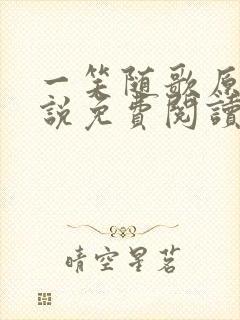 一笑随歌原
說免費閱讀
晴空星茗